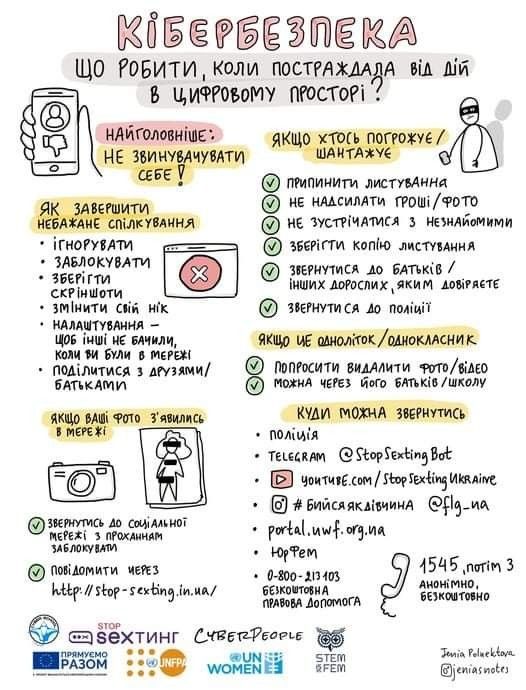 КІБЕРБЕЗПЕКА
ЩО РОБИТИ, КОЛИ ПОСТРАЖДАЛА ВІД ДІЙ
В ЦИФРОВОМУ ПРОСТОРІ?
НАЙГОЛОВНІШЕ:
НЕ ЗВИНУВАЧУВАТИ
СЕБЕ!
ЯК ЗАВЕРШИТИ
НЕБАЖАНЕ СПІЛКУВАННЯ
• ІГНОРУВАТИ
• ЗАБЛОКУВАТИ
• ЗБЕРІГТИ
СКРІНШОТИ
• ЗМІНИТИ СВІЙ НІК
• НАЛАШТУВАННЯ –
ЩОБ ІНШІ НЕ БАЧИЛИ,
КОЛИ ВИ БУЛИ В МЕРЕЖІ
• ПОДІЛИТИСЯ З ДРУЗЯМИ/
БАТЬКАМИ
ЯКЩО ВАШІ ФОТО З'ЯВИЛИСЬ
В МЕРЕЖІ
ЗВЕРНУТИСЬ ДО СОЦІАЛЬНОЇ
МЕРЕЖІ З ПРОХАННЯМ
ЗАБЛОКУВАТИ
ПОВІДОМИТИ ЧЕРЕЗ
http://stop-sexting.in.ua/
ЯКЩО ХТОСЬ ПОГРОЖУЄ/
ШАНТАЖУЄ
ПРИПИНИТИ ЛИСТУВАННЯ
НЕ НАДСИЛАТИ ГРОШІ/ФОТО
НЕ ЗУСТРІЧАТИСЯ З НЕЗНАЙОМИМИ
ЗБЕРІГТИ КОПІЮ ЛИСТУВАННЯ
ЗВЕРНУТИСЯ ДО БАТЬКІВ/
ІНШИХ ДОРОСЛИХ, ЯКИМ ДОВІРЯЄТЕ
ЗВЕРНУТИСЯ ДО ПОЛІЦІЇ
ЯКЩО ЦЕ ОДНОЛІТОК/ОДНОКЛАСНИК
ПОПРОСИТИ ВИДАЛИТИ ФОТО/ВІДЕО
МОЖНА ЧЕРЕЗ ЙОГО БАТЬКІВ/ШКОЛУ
КУДИ МОЖНА ЗВЕРНУТИСЬ
• ПОЛІЦІЯ
• TELEGRAM @StopSextingBot
• YOUTUBE.COM/StopSextingUkraine
• #БИЙСЯЯКДІВЧИНА @flg_ua
• portal.uwf.org.ua
• ЮрФем
• 0-800-213103
БЕЗКОШТОВНА
ПРАВОВА ДОПОМОГА
1545, потім 3
АНОНІМНО,
БЕЗКОШТОВНО
STOP
SEXТИНГ
CYBERPEOPLE
ПРЯМУЄМО
РАЗОМ
UNFPA
UN
WOMEN
STEM
is FEM
Jenia Poluektova
@jeniasnotes